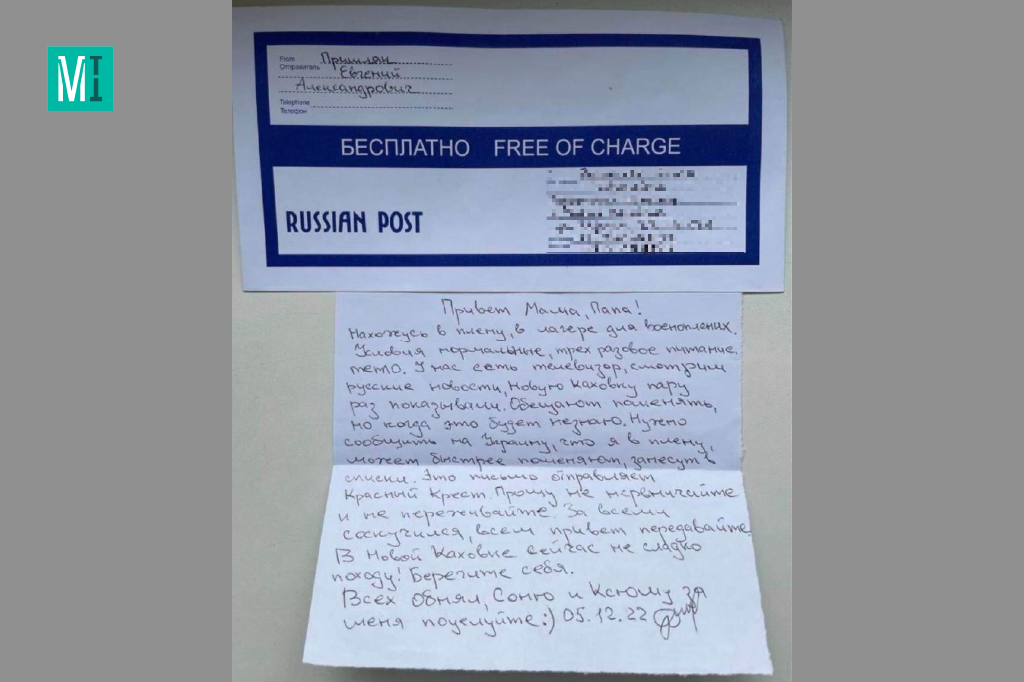 MI
From
Отправитель
Евгений
Александрович
Telephone
Телефон
БЕСПЛАТНО FREE OF CHARGE
RUSSIAN POST
Привет Мама, Папа!
Нахожусь в плену, в лагере для военоплених.
Условия нормальные, трех разовое питание,
тепло. У нас есть телевизор, смотрим
русские новости, Новую Каховку пару
раз показывали. Обещают поменять,
но когда это будет незнаю. Нужно
сообщить на Украину, что я в плену,
может быстрее поменяют, занесут в
списки. Это письмо отправляет
Красный Крест. Прошу не нервничайте
и не переживайте. За всеми
соскучился, всем привет передавайте.
В Новой Каховке сейчас не сладко
походу! Берегите себя.
Всех обнял, Соню и Ксюшу за
меня поцелуйте:) 05.12.22